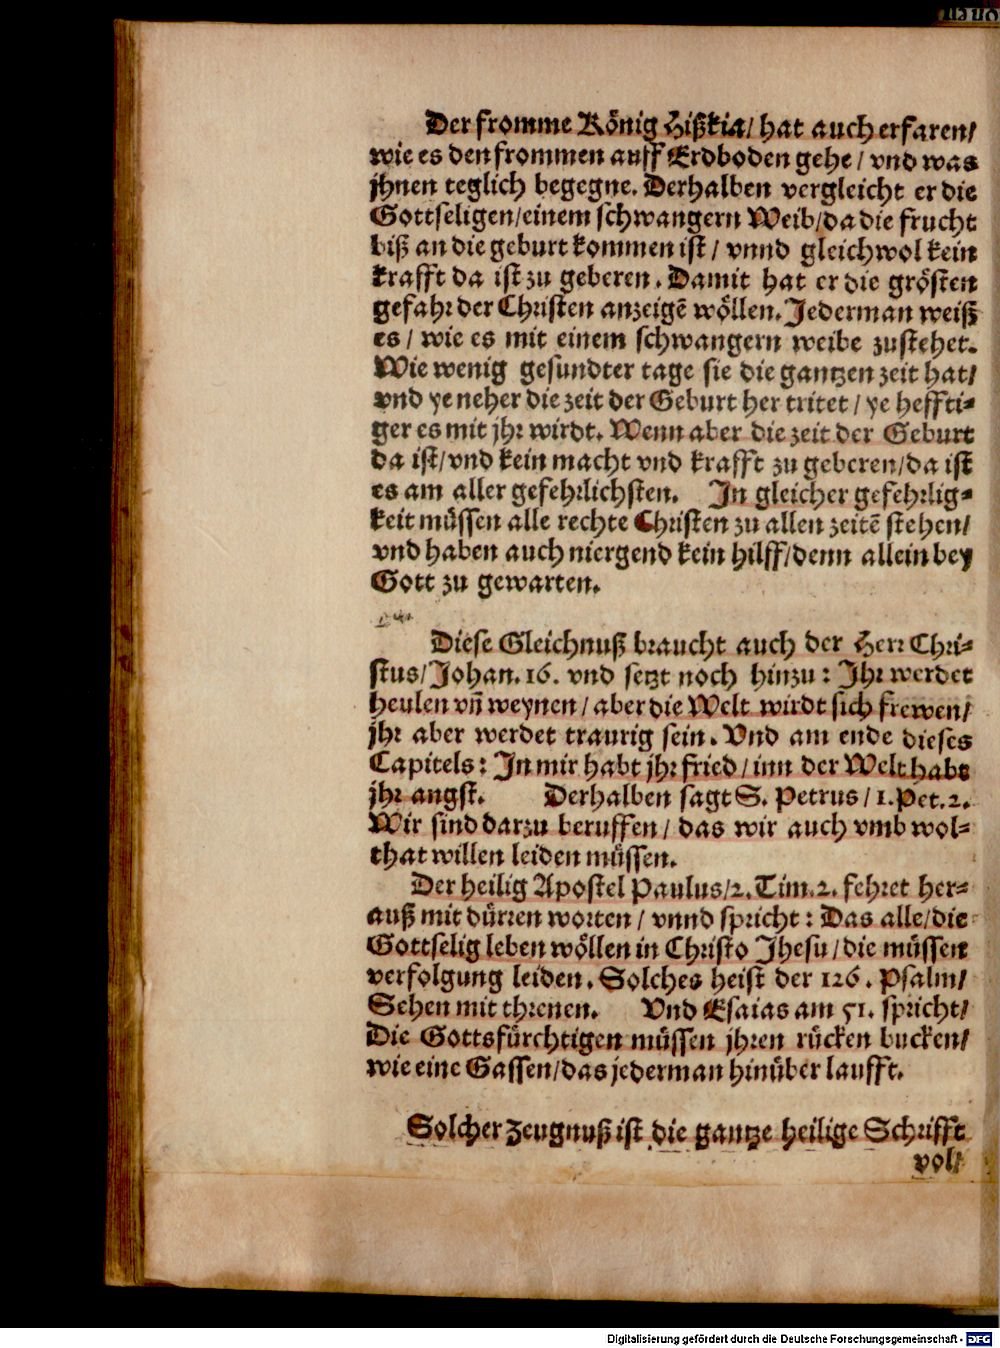 Der fromme König Hißkia/ hat auch erfaren/
wie es den frommen auff Erdboden gehe / vnd was
jhnen teglich begegne. Derhalben vergleicht er die
Gottseligen/einem schwangern Weib/da die frucht
biß an die geburt kommen ist / vnnd gleichwol kein
krafft da ist zu geberen. Damit hat er die grösten
gefahr der Christen anzeigē wöllen. Jederman weiß
es / wie es mit einem schwangern weibe zustehet.
Wie wenig gesundter tage sie die gantzen zeit hat/
vnd ye neher die zeit der Geburt her tritet / ye heffti-
ger es mit jhr wirdt. Wenn aber die zeit der Geburt
da ist/vnd kein macht vnd krafft zu geberen/da ist
es am aller gefehrlichsten. In gleicher gefehrlig-
keit müssen alle rechte Christen zu allen zeitē stehen/
vnd haben auch niergend kein hilff/denn allein bey
Gott zu gewarten.
Diese Gleichnuß braucht auch der Herr Chri-
stus/Johan. 16. vnd setzt noch hinzu : Ihr werdet
heulen vñ weynen / aber die Welt wirdt sich frewen/
jhr aber werdet traurig sein. Vnd am ende dieses
Capitels : In mir habt jhr fried / inn der Welt habt
jhr angst. Derhalben sagt S. Petrus / 1. Pet. 2.
Wir sind darzu beruffen / das wir auch vmb wol-
that willen leiden müssen.
Der heilig Apostel Paulus/2. Tim. 2. fehret her-
auß mit dürren worten / vnnd spricht : Das alle/die
Gottselig leben wöllen in Christo Jhesu / die müssen
verfolgung leiden. Solches heist der 126. Psalm/
Sehen mit threnen. Vnd Esaias am 51. spricht/
Die Gottsfürchtigen müssen jhren rücken bucken/
wie eine Gassen/das jederman hinüber laufft.
Solcher Zeugnuß ist die gantze heilige Schrifft
vol/
Digitalisierung gefördert durch die Deutsche Forschungsgemeinschaft - DFG